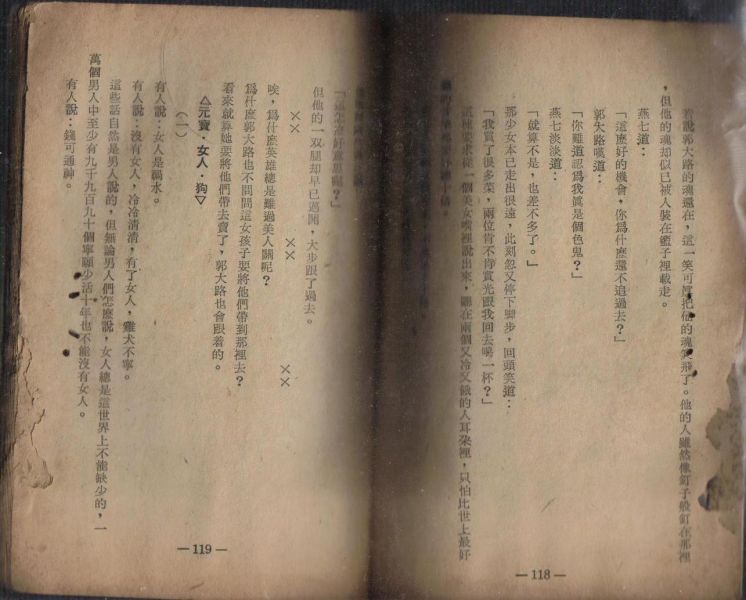 若說郭大路的魂還在，這一笑可真把他的魂笑飛了。他的人雖然像釘子般釘在那裡
，但他的魂却似已被人裝在籃子裡載走。
燕七道：
「這麽好的機會，你爲什麽還不追過去？」
郭大路嘆道：
「你難道認爲我眞是個色鬼？」
燕七淡淡道：
「就算不是，也差不多了。」
那少女本已走出很遠，此刻忽又停下脚步，回頭笑道：
「我買了很多菜，兩位肯不肯賞光跟我回去喝一杯？」
這種要求從一個美女嘴裡說出來，聽在兩個又冷又餓的人耳朶裡，只怕比世上最好
—118—
「這怎麽好意思呢？」
但他的一双腿却早已邁開，大步跟了過去。
×× ×× ××
唉，爲什麽英雄總是難過美人關呢？
爲什麽郭大路也不問問這女孩子要將他們帶到那裡去？
看來就算她要將他們帶去賣了，郭大路也會跟着的。
△元寶·女人·狗▽
（一）
有人說：女人是禍水。
有人說：沒有女人，冷冷清清，有了女人，雞犬不寧。
這些話自然是男人說的，但無論男人們怎麽說，女人總是這世界上不能缺少的，一
萬個男人中至少有九千九百九十個寧願少活十年也不能沒有女人。
有人說：錢可通神。
—119—